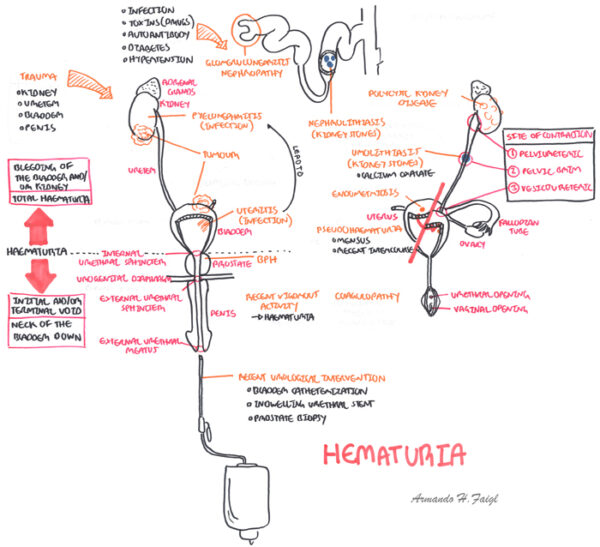 INFECTION
TOXINS (DRUGS)
AUTOANTIBODY
DIABETES
HYPERTENTION
GLOMERULONEPHRITIS
NEPHROPATHY
TRAUMA
KIDNEY
URETER
BLADDER
PENIS
ADRENAL
GLANDS
KIDNEY
PYELONEPHRITIS
(INFECTION)
TUMOUR
URETER
LEADS TO
NEPHROLITHIASIS
(KIDNEY STONES)
POLYCYSTIC KIDNEY
DISEASE
SITE OF CONTRACTION
1 PELVIURETERIC
2 PELVIC BRIM
3 VESICOURETERIC
UROLITHIASIS
(KIDNEY STONES)
CALCIUM OXALATE
ENDOMETRIOSIS
UTERUS
PSEUDOHAEMATURIA
MENSUS
RECENT INTERCOURSE
FALLOPIAN
TUBE
OVARY
BLEEDING OF
THE BLADDER AND/
OR KIDNEY
TOTAL HAEMATURIA
HAEMATURIA
INITIAL AND/OR
TERMINAL VOID
NECK OF THE
BLADDER DOWN
URETERITIS
(INFECTION)
BLADDER
INTERNAL
URETHRAL SPHINCTER
PROSTATE
BPH
UROGENITAL DIAPHRAGM
EXTERNAL URETHRAL
SPHINCTER
PENIS
EXTERNAL URETHRAL
MEATUS
RECENT VIGOROUS
ACTIVITY
→ HAEMATURIA
COAGULOPATHY
URETHRAL OPENING
VAGINAL OPENING
RECENT UROLOGICAL INTERVENTION
BLADDER CATHETERIZATION
INDWELLING URETHRAL STENT
PROSTATE BIOPSY
HEMATURIA
Armando H. Faigl